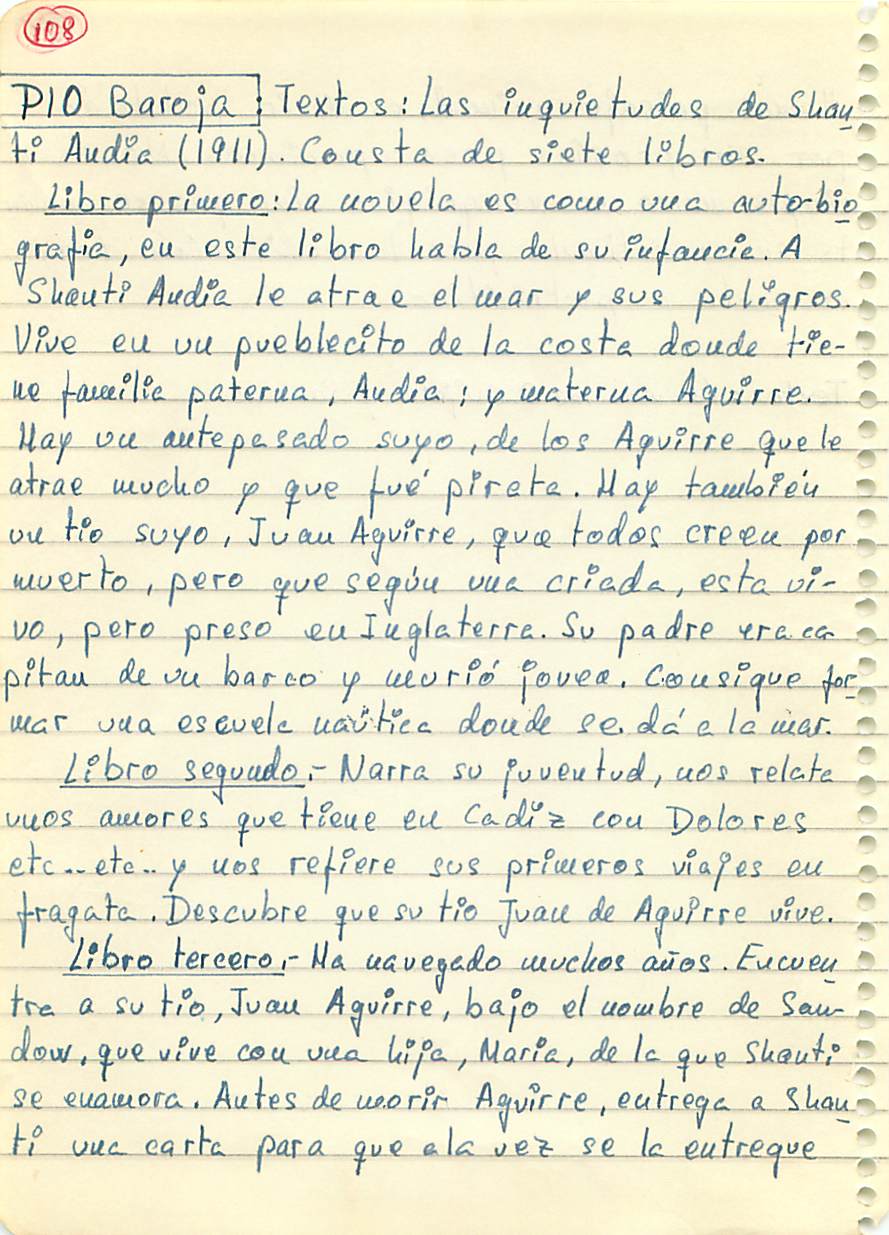 108
PIO Baroja: Textos: Las inquietudes de Shan
ti Andía (1911). Consta de siete libros.
Libro primero: La novela es como una auto-bio
grafia, en este libro habla de su infancia. A
Shanti Andía le atrae el mar y sus peligros.
Vive en un pueblecito de la costa donde tie-
ne familia paterna, Andía; y materna Aguirre.
Hay un antepasado suyo, de los Aguirre que le
atrae mucho y que fué pirata. Hay también
un tio suyo, Juan Aguirre, que todos creen por
muerto, pero que según una criada, esta vi-
vo, pero preso en Inglaterra. Su padre era ca
pitan de un barco y murió joven. Consigue for
mar una escuela naútica donde se dá a la mar.
Libro segundo.- Narra su juventud, nos relata
unos amores que tiene en Cadiz con Dolores
etc.. etc.. y nos refiere sus primeros viajes en
fragata. Descubre que su tio Juan de Aguirre vive.
Libro tercero.- Ha navegado muchos años. Encuen
tra a su tio, Juan Aguirre, bajo el nombre de San-
dow, que vive con una hija, Maria, de la que Shanti
se enamora. Antes de morir Aguirre, entrega a Shan
ti una carta para que a la vez se la entregue